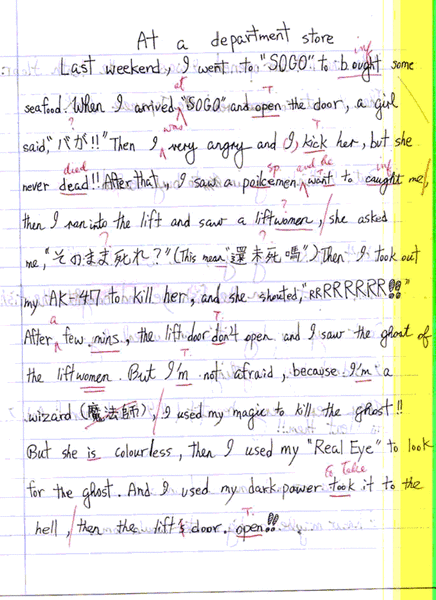 At a department store
Last weekend, I went to "SOGO" to bought some
inf
seafood. When I arrived, "SOGO" and open the door, a girl
at
T.
?
said, "バガ!!" Then I very angry and I, kick her, but she
was
T.
never dead!! After that, I saw a poilcemen want to caught me,
died
sp
and he
inf
then I ran into the lift and saw a liftwomen, she asked
?
me, "そのまま死れ?" (This mean "還未死嗎") Then I took out
my AK-47 to kill her, and she shouted, "RRRRRRRRR!!"
After few mins, the lift door don't open and I saw the ghost of
a
T.
the liftwomen. But I'm not afraid, because I'm a
T.
wizard (魔法師), I used my magic to kill the ghost!!
But she is colourless, then I used my "Real Eye" to look
for the ghost. And I used my dark power took it to the
to take
hell, then the lift door. open!!.
T.